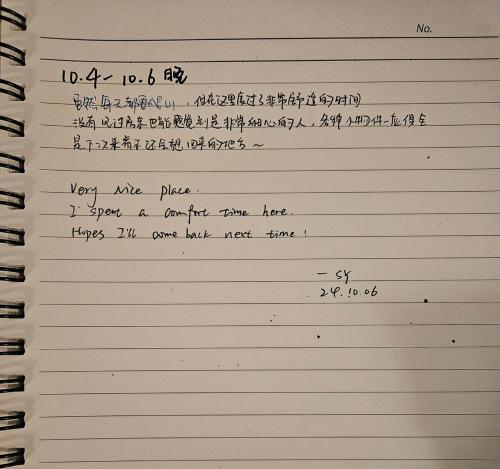 No.
10.4-10.6 晚
虽然每天都要爬山，但在这里度过了非常舒适的时间
没有见过房东也能感觉到是非常细心的人，各种小物件一应俱全
是下次来着不还会想回来的地方～
Very nice place.
I spent a comfort time here.
Hopes I'll come back next time!
— SY
24.10.06